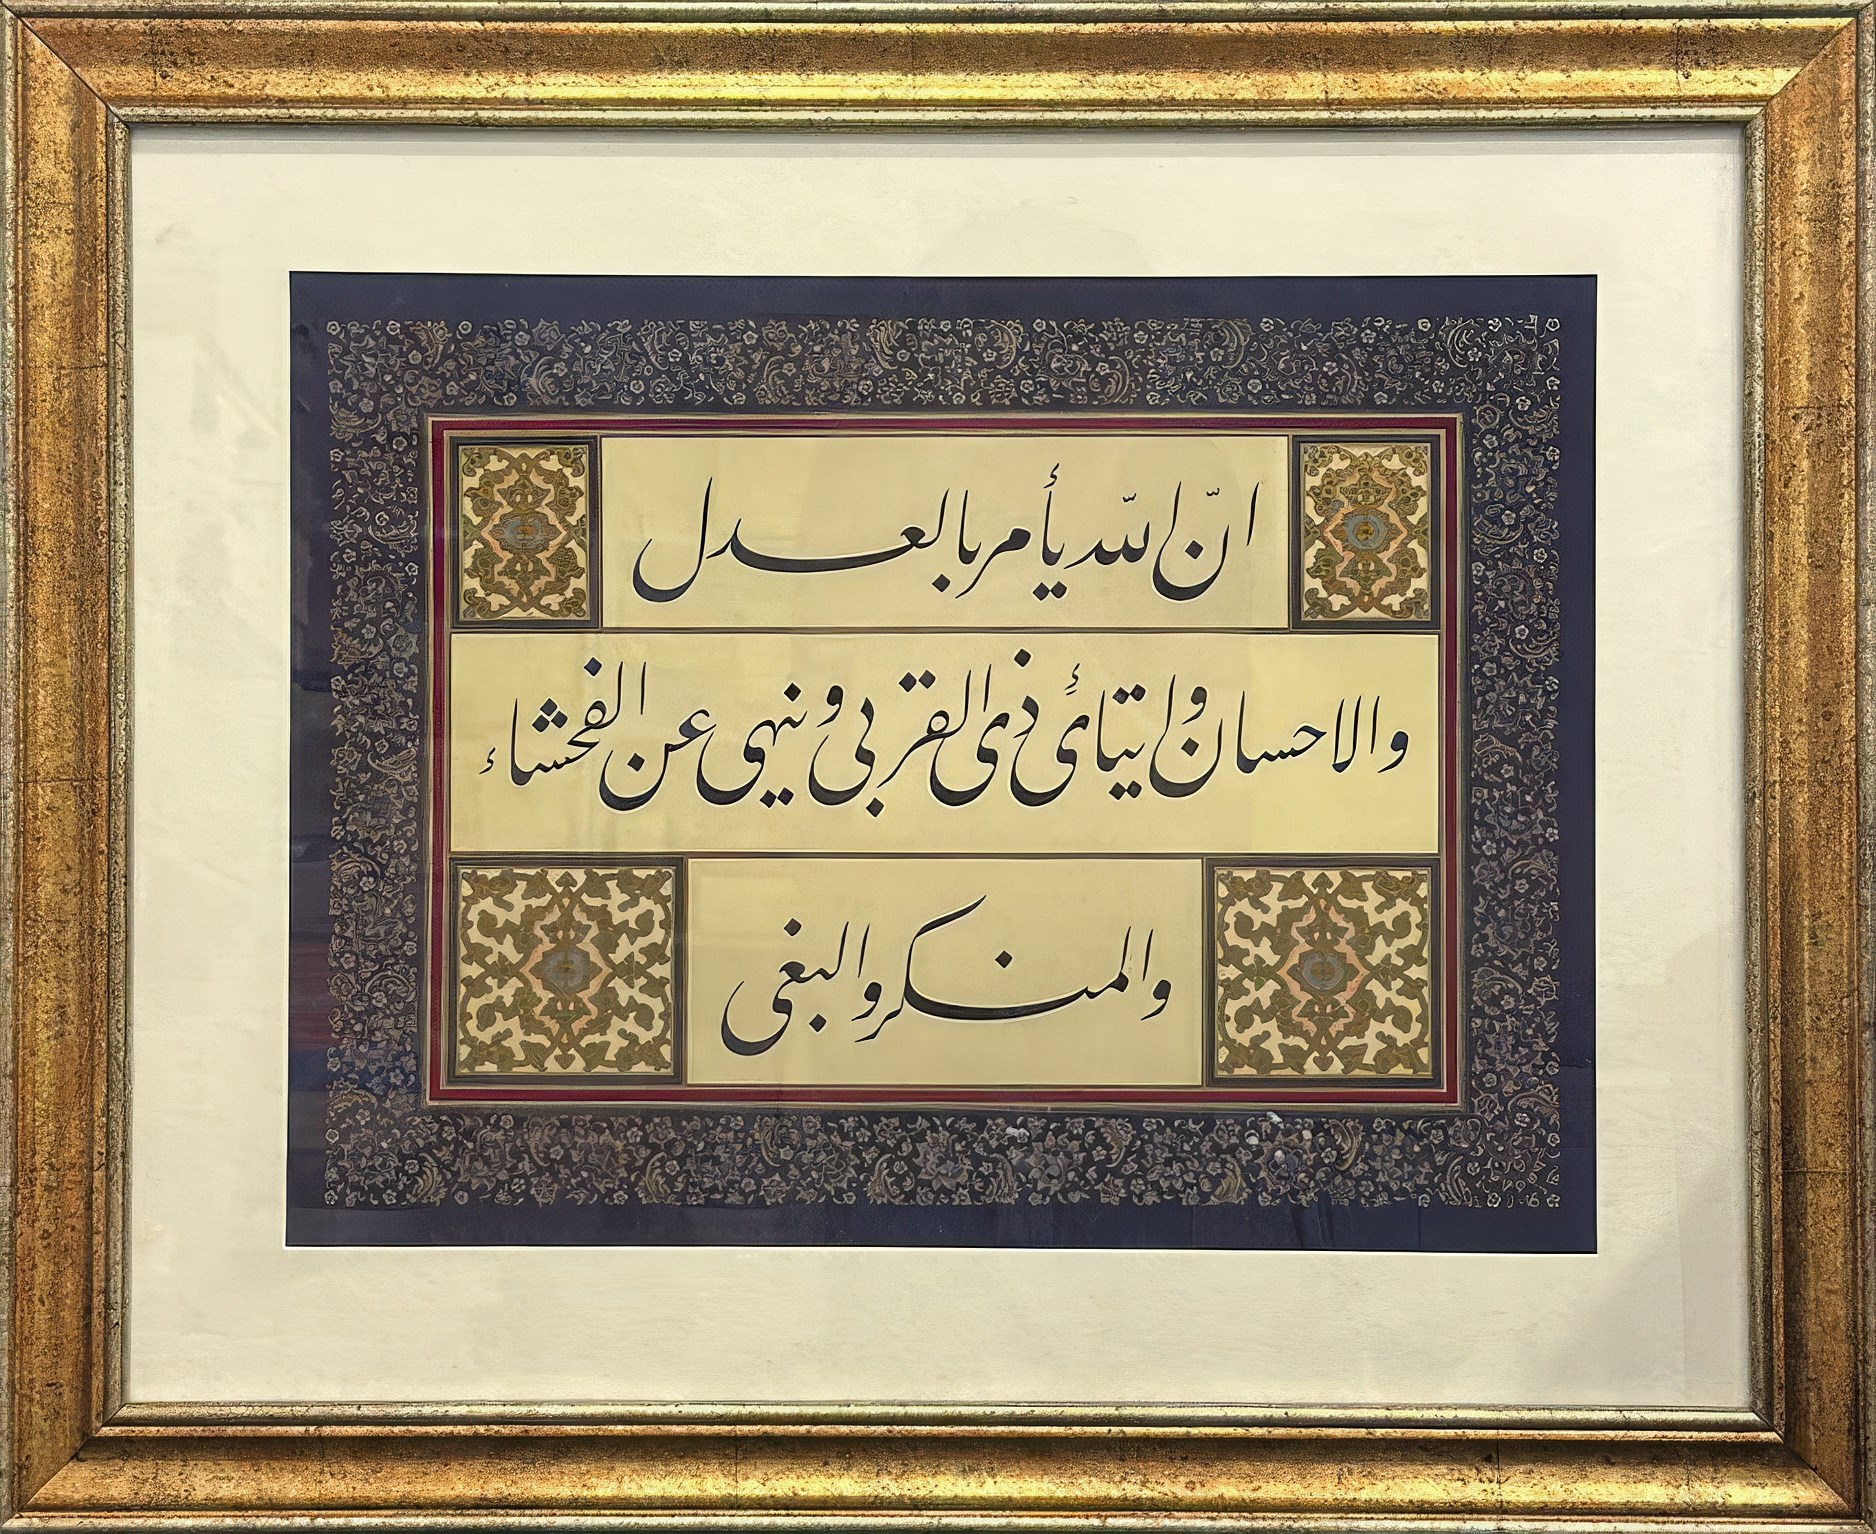 انّ اللّه يأمر بالعدل
والاحسان وايتائ ذى القربى وينهى عن الفحشاء
والمنكر والبغى